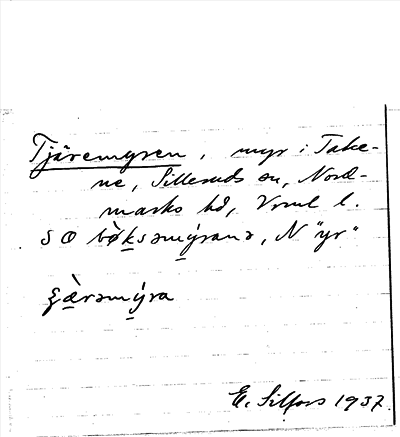 Tjäremyren, myr i Take-
ne, Silleruds sn, Nord-
marks hd, Vrml l.
S O bø̀ksəmýrana, N "yr"
ɕæ̀rəmýra
E. Silfors 1937.